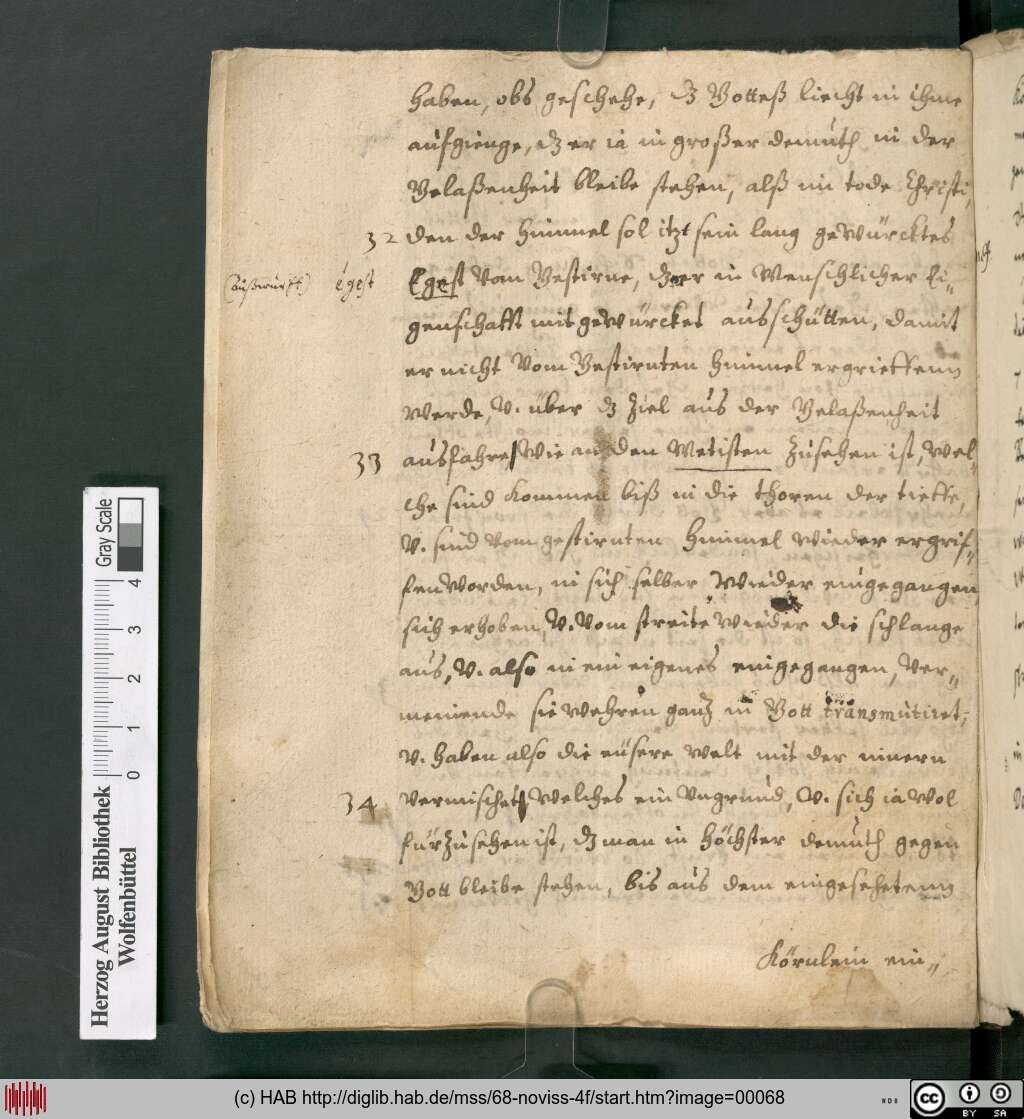 haben, obs geschehe, dz Gotteß liecht in ihme
aufgienge, dz er ia in großer demuth in der
Gelaßenheit bleibe stehen, alß im tode Christi,
32 den der himmel sol itzt sein lang gewürcktes
(außwurft) egest Egest vom Gestirne, dz er in Menschlicher Ei-
genschafft mit gewürcket ausschütten, damit
er nicht vom Gestirnten himmel ergrieffenn
werde, v. über dz Ziel aus der Gelaßenheit
33 ausfahre, wie an den Metisten Zusehen ist, wel-
che sind kommen biß in die thoren der tieffe,
v. sind vom gestirnten himmel wieder ergrif-
fen worden, in sich selber wieder eingegangen,
sich erhoben, v. vom streite wieder die schlange
aus, v. also in ein eigenes eingegangen, ver-
meinende sie wehren ganz in Gott transmutiret,
v. haben also die eüsere welt mit der innern
34 vermischet, welches ein Vngrund, v. sich ia wol
fürzusehen ist, dz man in höchster demuth gegen
Gott bleibe stehen, bis aus dem eingesehetenn
Körnlein ein-
Gray Scale
0 1 2 3 4
Herzog August Bibliothek
Wolfenbüttel
(c) HAB http://diglib.hab.de/mss/68-noviss-4f/start.htm?image=00068
WDB
cc BY SA